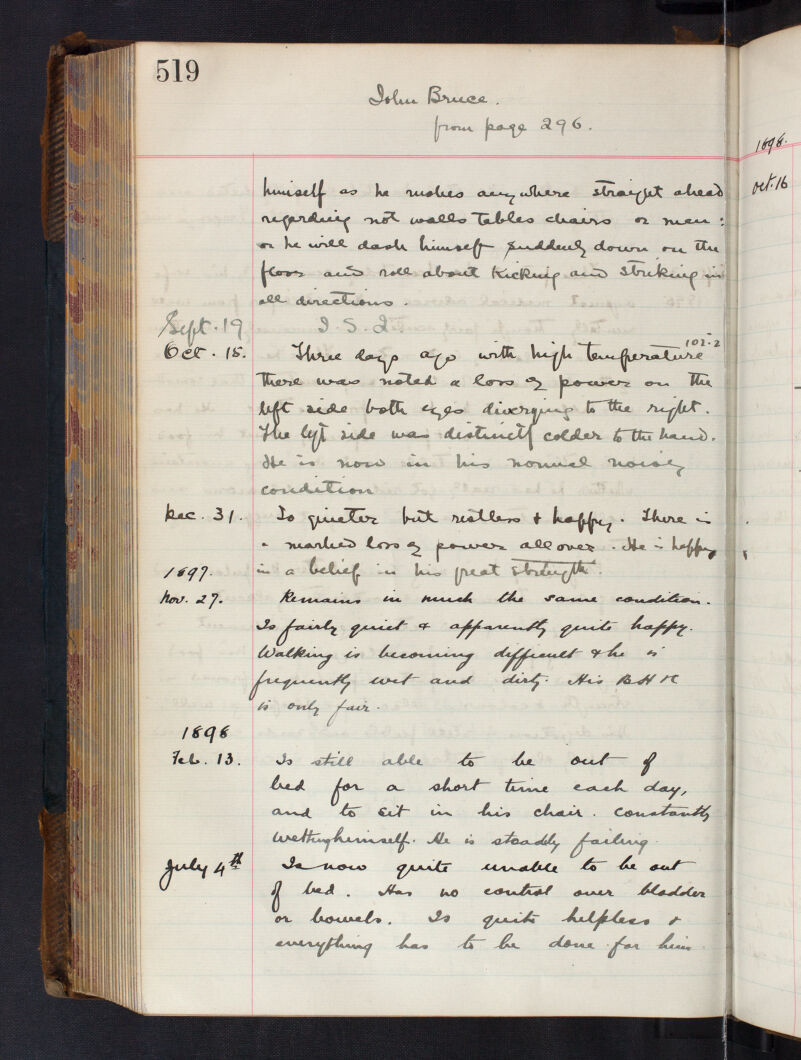 519
John Bruce.
from page 296.
himself as he rushes anywhere straight ahead
regarding not walls tables chairs or men:
or he will dash himself suddenly down on the
floor and roll about kicking and striking in
all directions.
Sept. 19 I. S. Q
Oct. 15. Three days ago with high temperature 102.2
there was noted a loss of power on the
left side both eyes diverging to the right.
The left side was distinctly colder to the hand.
He is now in his normal noisy
condition
Dec. 31. Is quieter but restless & happy. There is
a marked loss of power all over. He is happy
1897. in a belief in his great strength.
Nov. 27. Remains in much the same condition.
Is fairly quiet & apparently quite happy.
Walking is becoming difficult & he is
frequently wet and dirty. His B H H
is only fair.
1898
Feb. 13. Is still able to be out of
bed for a short time each day,
and to sit in his chair. Constantly
wetting himself. He is steadily failing.
July 4th Is now quite unable to be out
of bed. Has no control over bladder
or bowels. Is quite helpless &
everything has to be done for him.
1898.
Oct. 16